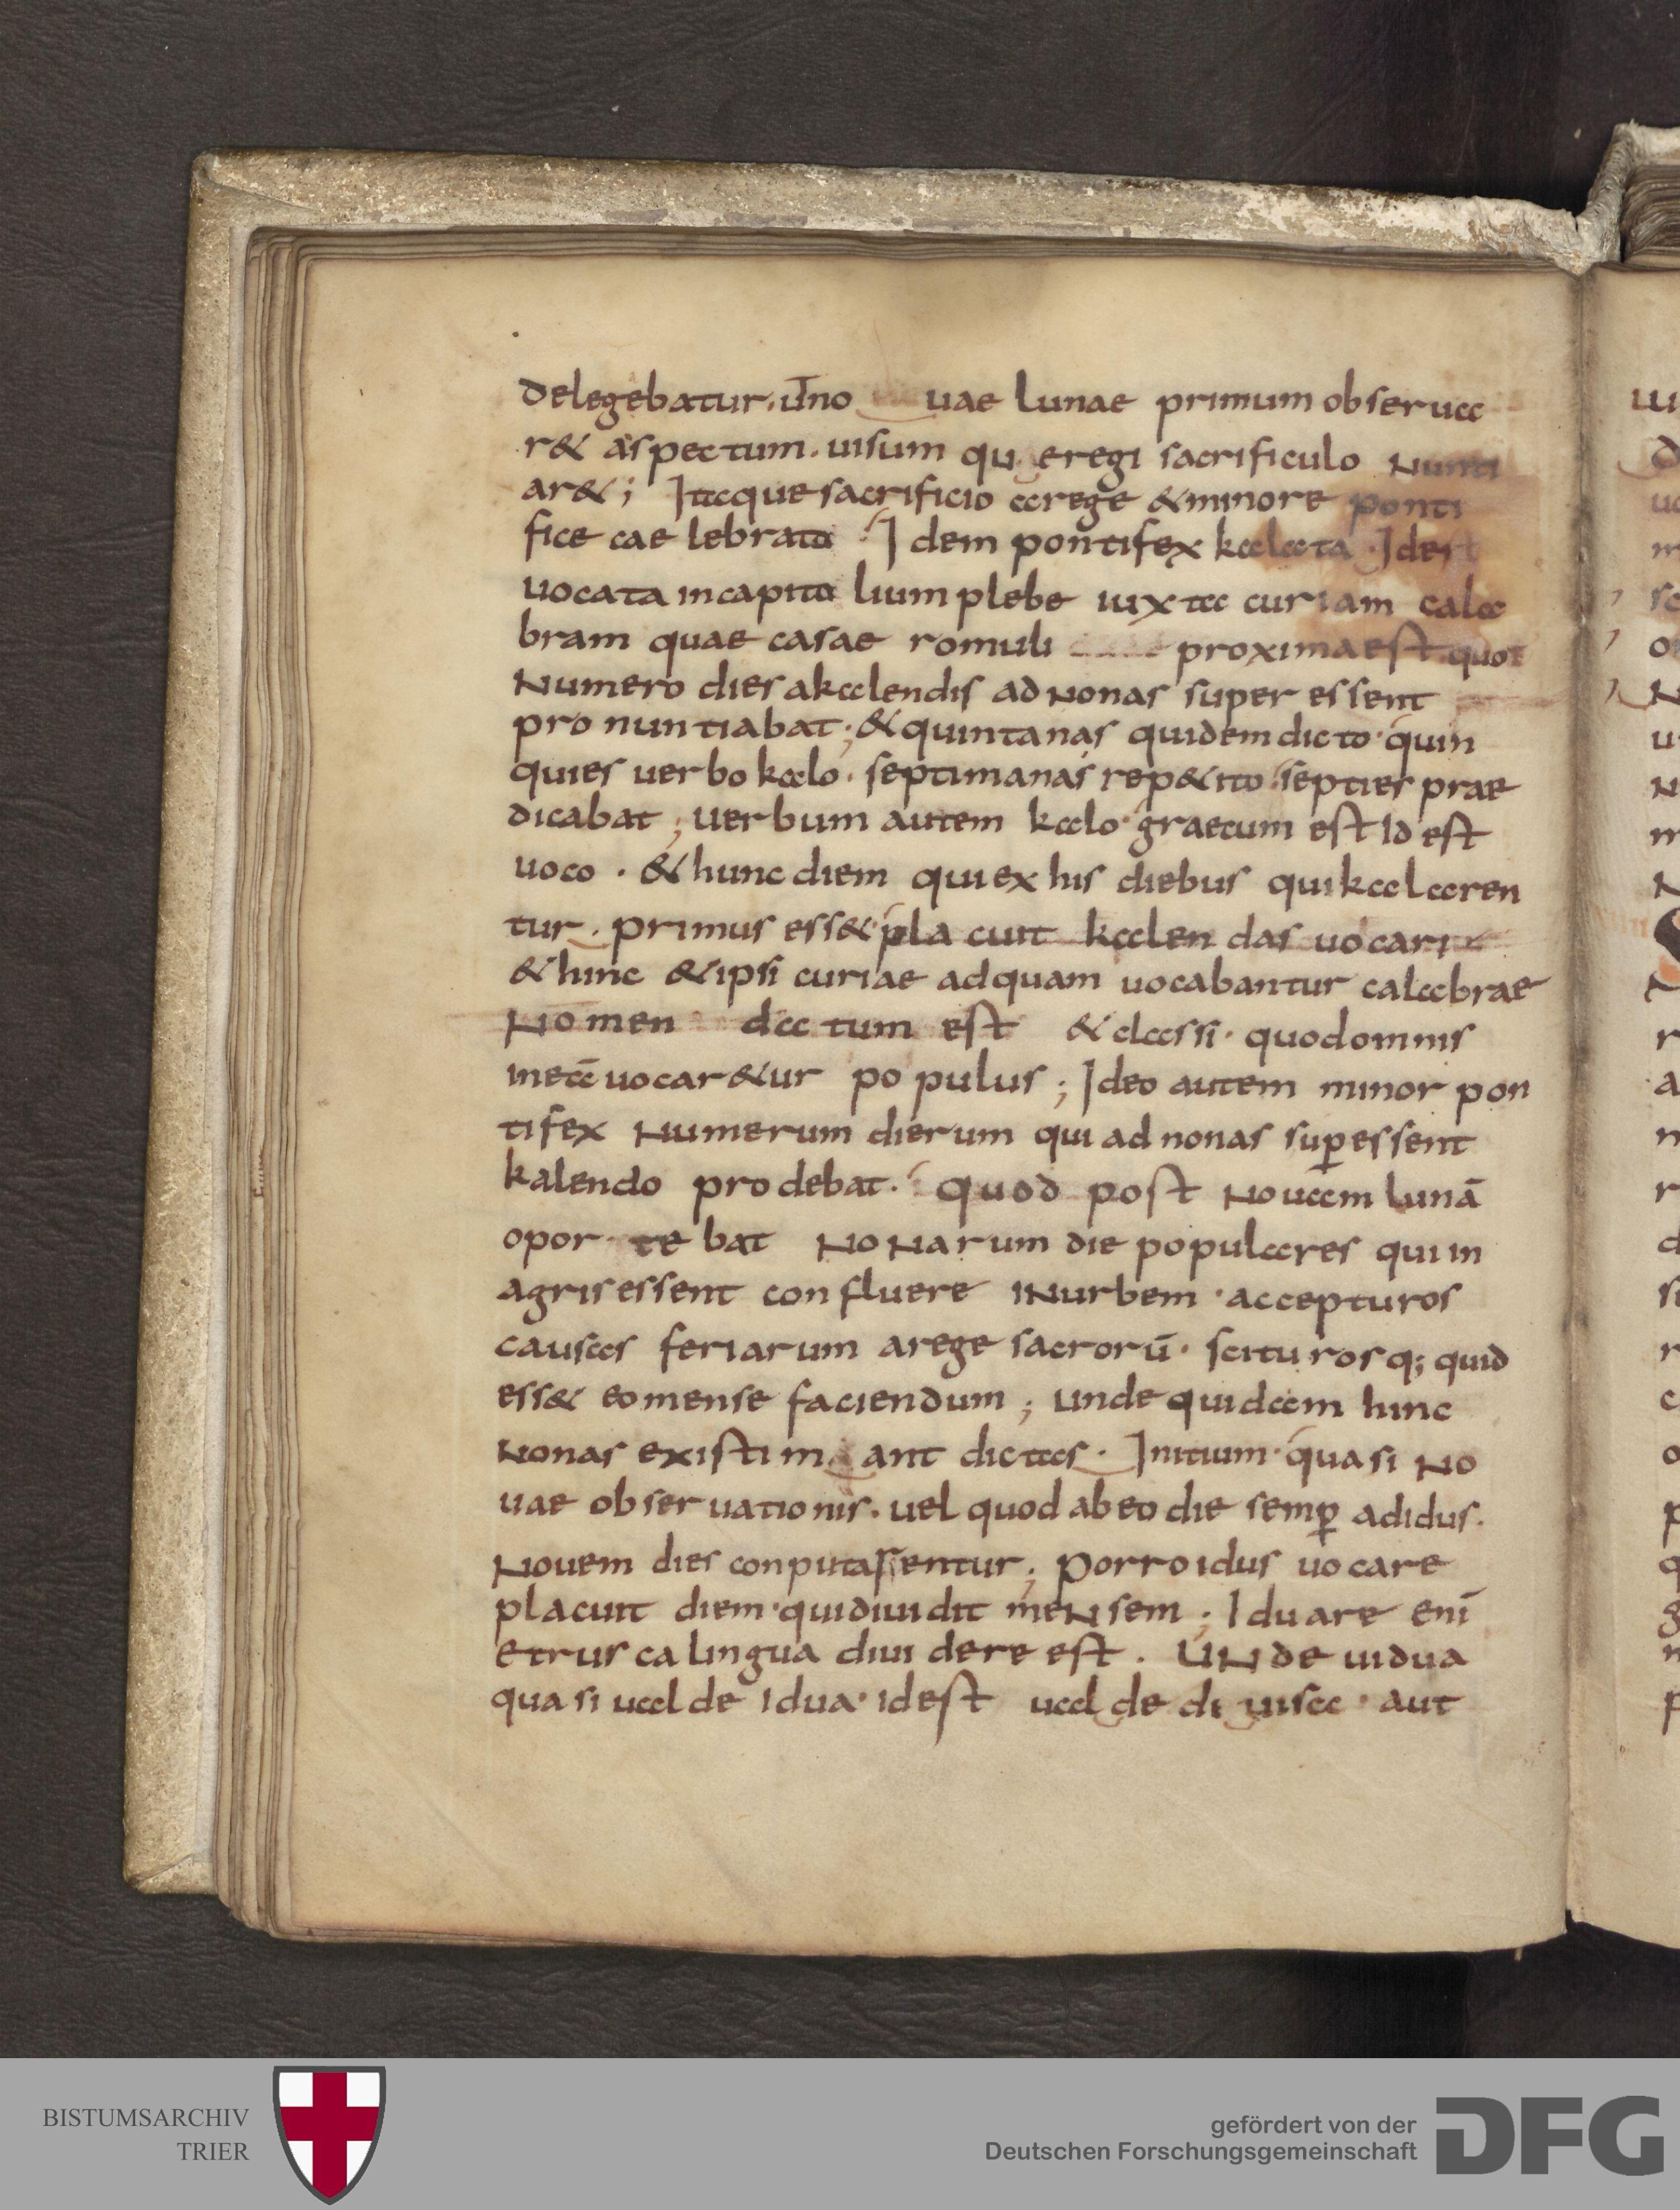 delegebatur. ut no uae lunae primum obserua
r& aspectum. uisum qu eregi sacrificulo nunti
ar&; Itaque sacrificio a rege & minore ponti
fice cae lebrato. Idem pontifex kalata. Idest
uocata in capito lium plebe iuxta curiam cala
bram quae casae romuli proxima est. quot
Numero dies a kalendis ad nonas super essent
pro nuntiabat; & quintanas quidem dicto. quin
quies uerbo kalo. septimanas rep&ito. septies prae
dicabat; uerbum autem kalo. graecum est id est
uoco. & hunc diem qui ex his diebus qui kalaren
tur. primus ess& pla cuit kalen das uocari
& hinc & ipsi curiae ad quam uocabantur calabrae
Nomen da tum est & classi. quod omnis
in eā uocar&ur po pulus; Ideo autem minor pon
tifex Numerum dierum qui ad nonas suꝑessent
kalendo prodebat. quod post Nouam lunā
opor te bat NoNarum die populares qui in
agris essent con fluere iNurbem. accepturos
causas feriarum a rege sacrorū. scituros q; quid
ess& eo mense faciendum; unde quidam hinc
Nonas existim ant dictas. Initium. quasi No
uae obseruationis. uel quod ab eo die semꝑ ad idus.
Nouem dies conputassentur; Porro idus uocare
placuit diem. qui diuidit meNsem; Iduare enī
etrus ca lingua diui dere est. UNde uidua
quasi ualde idua. idest ualde di uisa. aut
BISTUMSARCHIV
TRIER
gefördert von der
Deutschen Forschungsgemeinschaft
DFG